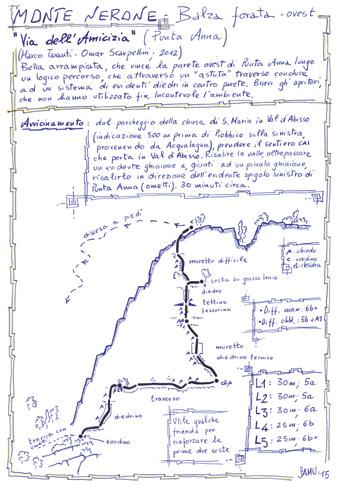 MONTE NERONE - Balza forata - ovest
"Via dell'Amicizia" (Punta Anna)
(Marco Tixanti - Omar Scarpellini - 2012)
Bella arrampicata, che vince la parete ovest di Punta Anna lungo
un logico percorso, che attraverso un "astuto" traverso conduce
ad un sistema di evidenti diedri in centro parete. Bravi gli apritori,
che non hanno utilizzato fix lasciando l'ambiente.
Avvicinamento: dal parcheggio della chiesa di S. Maria in Val d'Abisso
(indicazione 500 m prima di Piobbico sulla sinistra,
provenendo da Acqualagna), prendere il sentiero CAI
che porta in Val d'Abisso. Risalire la valle, oltrepassare
un evidente ghiaione e, giunti ad un piccolo ghiaione,
risalirlo in direzione dell'evidente spigolo sinistro di
Punta Anna (ometti). 30 minuti circa.
discesa a piedi
muretto difficile
sosta su grosso leccio
diedro
tettino
fessurino
muretto
diedrino tecnico
traverso
diedrino
cordino
chiodo
cordino
clessidra
• Diff. max: 6b+
• Diff. obbl.: 5b e A1
L1: 30m; 5a
L2: 30m; 5a
L3: 30m; 6a
L4: 25m; 6b
L5: 25m; 6b+
Utile qualche
friend per
rinforzare le
prime due soste